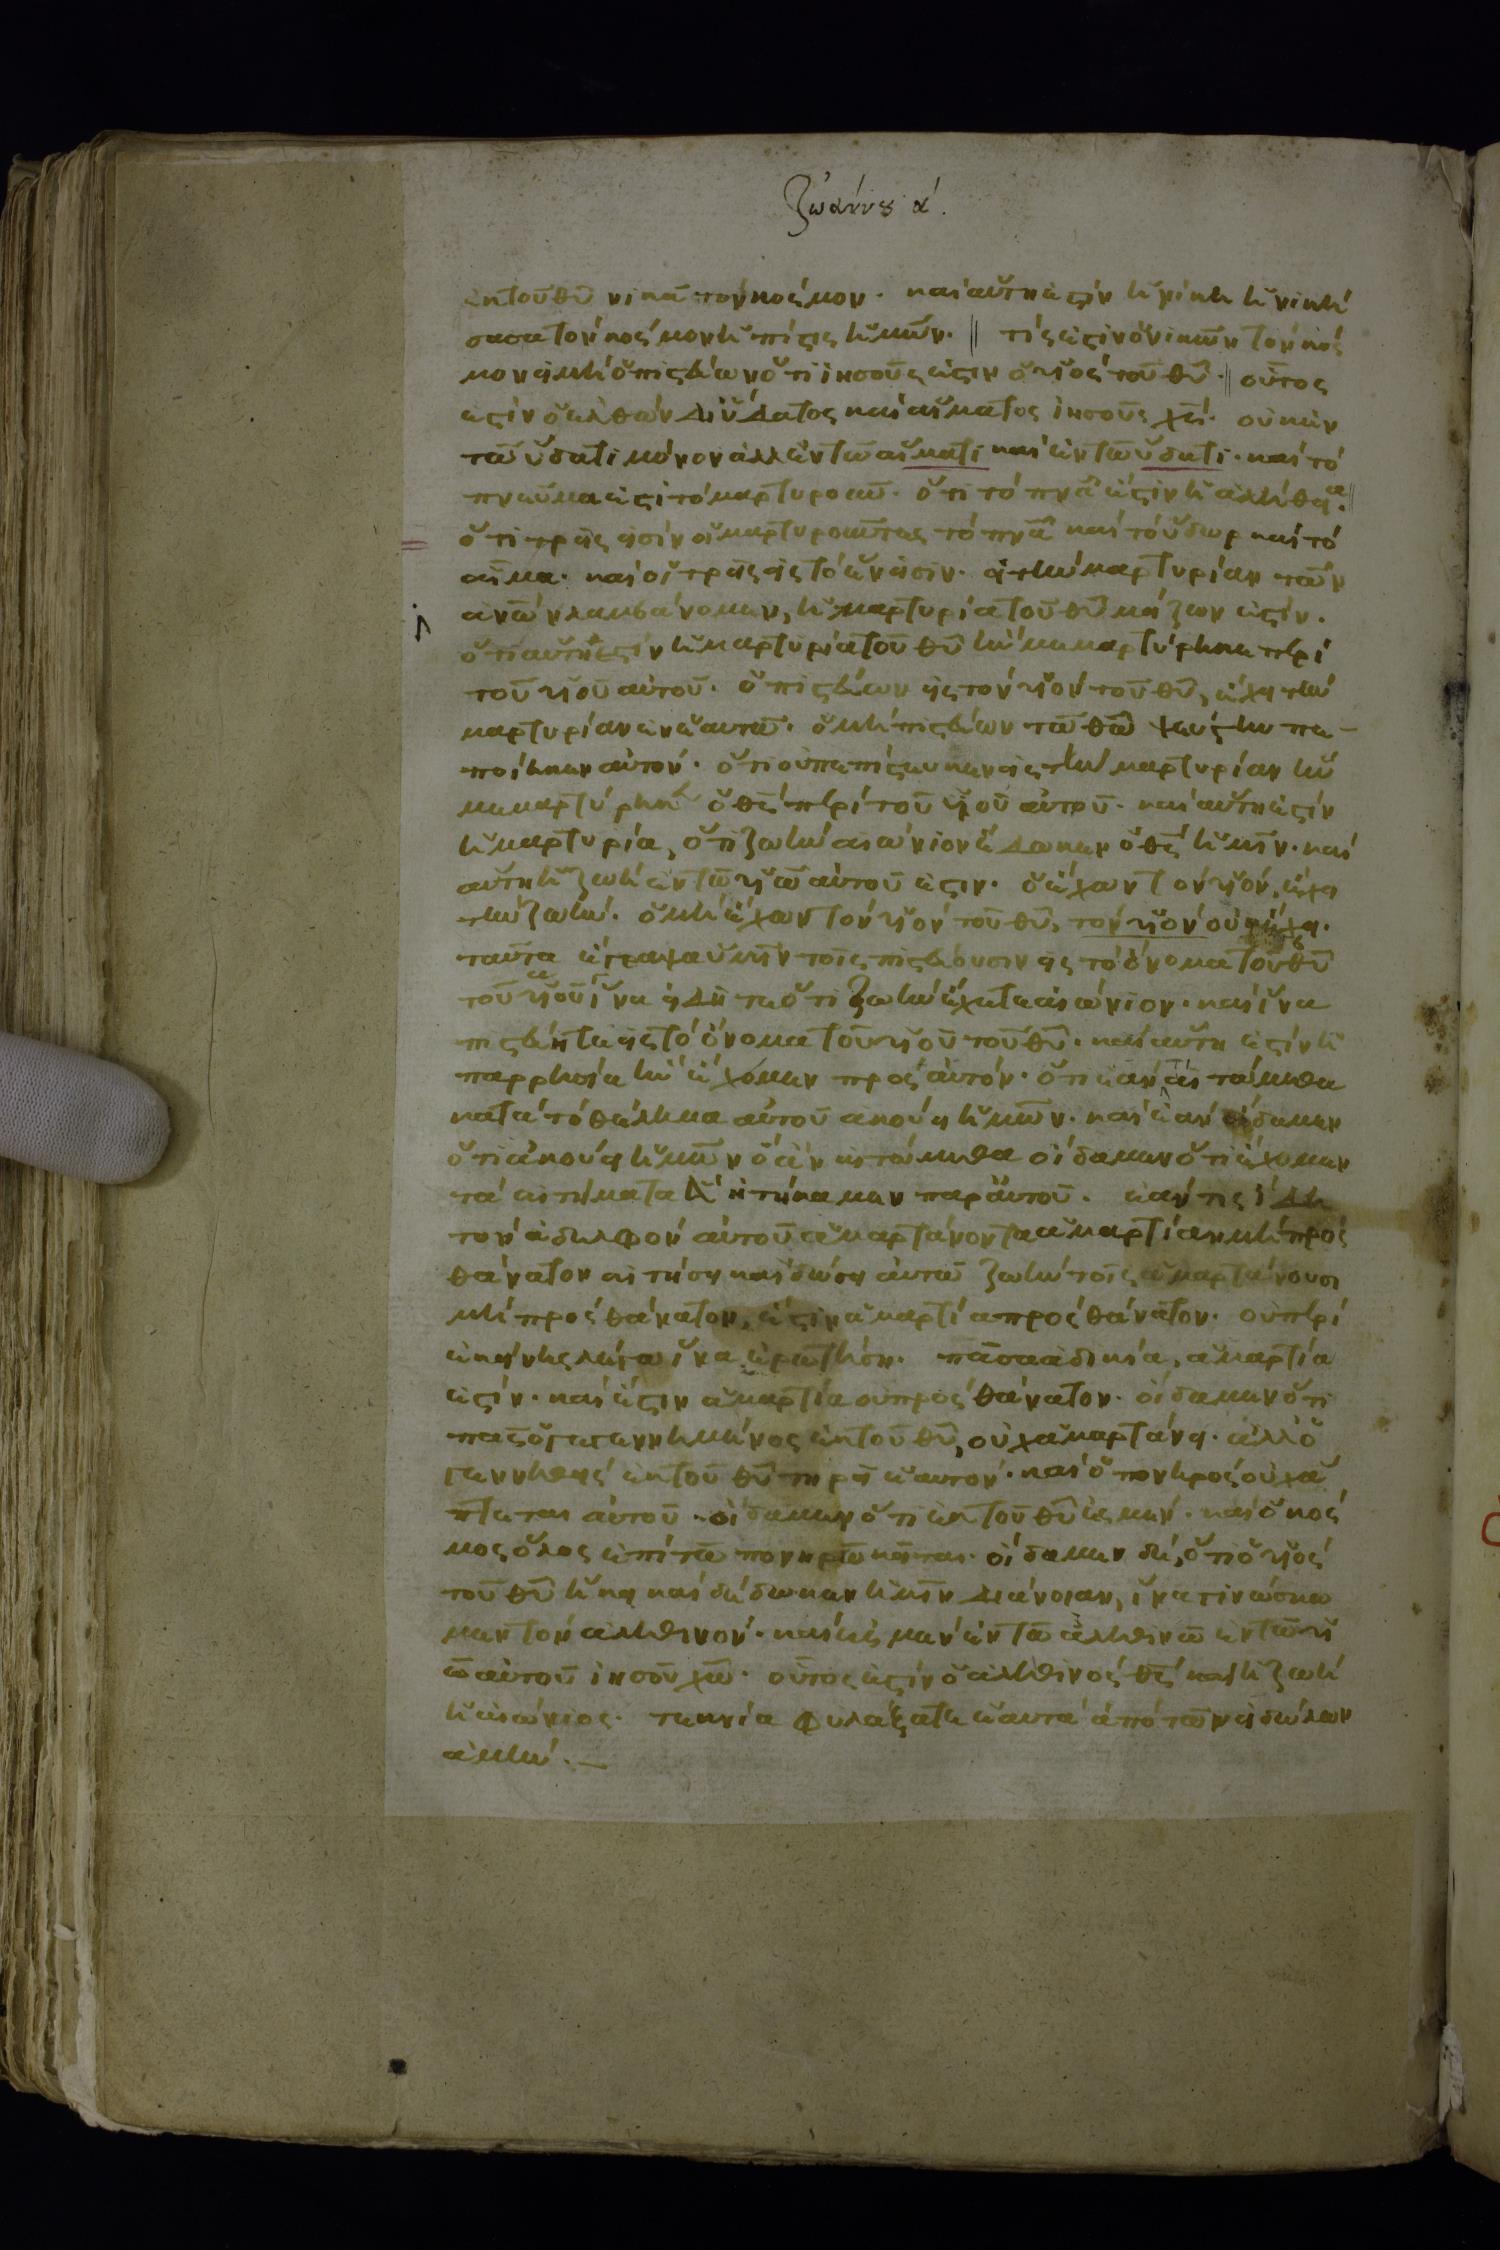 Ἰωάννου α΄.
ἐκ τοῦ θῦ νικᾶ τὸν κόσμον· καὶ αὕτη ἐστὶν ἡ νίκη ἡ νική
σασα τὸν κόσμον ἡ πίστις ἡμῶν· τίς ἐστιν ὁ νικῶν τὸν κόσ
μον εἰ μὴ ὁ πιστεύων ὅτι ἰησοῦς ἐστιν ὁ υἱὸς τοῦ θῦ· οὗτος
ἐστὶν ὁ ἐλθὼν δι ὕδατος καὶ αἵματος ἰησοῦς χς· οὐκ ἐν
τῶ ὕδατι μόνον ἀλλ ἐν τῶ αἵματι καὶ ἐν τῶ ὕδατι· καὶ τὸ
πνεῦμα ἐστὶ τὸ μαρτυροῦν· ὅτι τὸ πνᾶ ἐστὶν ἡ ἀλήθεια·
ὅτι τρεῖς εἰσὶν οἱ μαρτυροῦντες τὸ πνᾶ καὶ τὸ ὕδωρ καὶ τὸ
αἷμα· καὶ οἱ τρεῖς εἰς τὸ ἕν εἰσιν· εἰ τὴν μαρτυρίαν τῶν
ἀνῶν λαμβάνομεν, ἡ μαρτυρία τοῦ θῦ μείζων ἐστίν·
ὅτι αὕτη ἐστὶν ἡ μαρτυρία τοῦ θῦ ἣν μεμαρτύρηκε περὶ
τοῦ υἱοῦ αὐτοῦ· ὁ πιστεύων εἰς τὸν υἱὸν τοῦ θῦ, ἔχει τὴν
μαρτυρίαν ἐν ἑαυτῶ· ὁ μὴ πιστεύων τῶ θῶ ψεύστην πε-
ποίηκεν αὐτόν· ὅτι οὐ πεπίστευκεν εἰς τὴν μαρτυρίαν ἣν
μεμαρτύρηκε ὁ θς περὶ τοῦ υἱοῦ αὐτοῦ· καὶ αὕτη ἐστὶν
ἡ μαρτυρία, ὅτι ζωὴν αἰώνιον ἔδωκεν ὁ θς ἡμῖν· καὶ
αὕτη ἡ ζωὴ ἐν τῶ υἱῶ αὐτοῦ ἐστιν· ὁ ἔχων τὸν υἱόν, ἔχει
τὴν ζωήν· ὁ μὴ ἔχων τὸν υἱὸν τοῦ θῦ, τὸν υἱὸν οὐκ ἔχει·
ταῦτα ἔγραψα ὑμῖν τοῖς πιστεύουσιν εἰς τὸ ὄνομα τοῦ θῦ
τοῦ υἱοῦ ἵνα εἰδῆτε ὅτι ζωὴν ἔχετε αἰώνιον· καὶ ἵνα
πιστεύητε εἰς τὸ ὄνομα τοῦ υἱοῦ τοῦ θῦ· καὶ αὕτη ἐστὶν ἡ
παρρησία ἣν ἔχομεν πρὸς αὐτόν· ὅτι ἐάν τι αἰτώμεθα
κατὰ τὸ θέλημα αὐτοῦ ἀκούει ἡμῶν· καὶ ἐὰν οἴδαμεν
ὅτι ἀκούει ἡμῶν ὃ ἂν αἰτώμεθα οἴδαμεν ὅτι ἔχομεν
τὰ αἰτήματα ἃ ἠτήκαμεν παρ αὐτοῦ· ἐάν τις ἴδη
τὸν ἀδελφὸν αὐτοῦ ἁμαρτάνοντα ἁμαρτίαν μὴ πρὸς
θάνατον αἰτήσει καὶ δώσει αὐτῶ ζωὴν τοῖς ἁμαρτάνουσι
μὴ πρὸς θάνατον, ἔστιν ἁμαρτία πρὸς θάνατον· οὐ περὶ
ἐκείνης λέγω ἵνα ἐρωτήση· πᾶσα ἀδικία, ἁμαρτία
ἐστίν· καὶ ἔστιν ἁμαρτία οὐ πρὸς θάνατον· οἴδαμεν ὅτι
πᾶς ὁ γεγεννημένος ἐκ τοῦ θῦ, οὐχ ἁμαρτάνει· ἀλλ ὁ
γεννηθεὶς ἐκ τοῦ θῦ τηρεῖ ἑαυτόν· καὶ ὁ πονηρὸς οὐχ ἅ
πτεται αὐτοῦ· οἴδαμεν ὅτι ἐκ τοῦ θῦ ἐσμέν· καὶ ὁ κόσ
μος ὅλος ἐπὶ τῶ πονηρῶ κεῖται· οἴδαμεν δέ, ὅτι ὁ υἱὸς
τοῦ θῦ ἥκει καὶ δέδωκεν ἡμῖν διάνοιαν, ἵνα γινώσκω
μεν τὸν ἀληθινόν· καὶ ἐσμὲν ἐν τῶ ἀληθινῶ ἐν τῶ υἱ
ῶ αὐτοῦ ἰησοῦ χῶ· οὗτος ἐστὶν ὁ ἀληθινὸς θς καὶ ἡ ζωὴ
ἡ αἰώνιος· τεκνία φυλάξατε ἑαυτὰ ἀπὸ τῶν εἰδώλων
ἀμήν·—